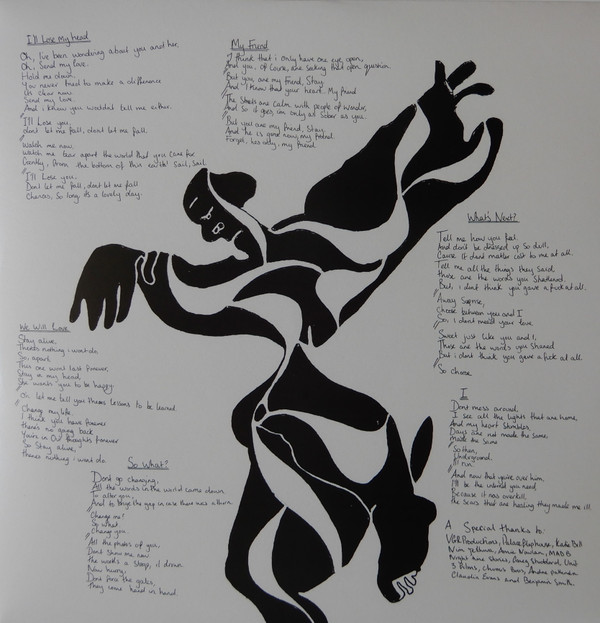 I'll Lose my head
Oh, I've been wondering about you and her.
Oh, Send my love.
Hold me down.
You never tried to make a difference
Its clear now.
Send my love.
And i know you wouldnt tell me either.
I'll Lose you.
dont let me fall, dont let me fall.
Watch me now.
Watch me tear apart the world that you came for
Gently, from the bottom of this earth! Sail, Sail.
I'll Lose you.
Dont let me fall, dont let me fall
Cheers, So long its a lovely day.
My Friend
I think that i only have one eye open,
And you, of course, are seeking that open question
But you are my friend, Stay
And "I know that your heart. My friend
The Streets are calm with people of wonder,
And so it goes, im only as sober as you.
But you are my friend, Stay,
And he is good now, my friend.
Forget, his ally, my friend.
What's Next?
Tell me how you feel.
And dont be dressed up so dull,
Cause it dont matter cost to me at all.
Tell me all the things they said.
these are the words you Shattered.
But, i dont think you gave a fuck at all.
Away
Choose between you and I
So, i dont need your love.
Sweet just like you and I,
These are the words you Shared
But i dont think you gave a fuck at all.
So choose
We Will Love
Stay alive,
Theres nothing i wont do
So, apart
This one wont last forever,
Stay in my head,
She wants you to be happy.
Oh let me tell you theres lessons to be learned
Change my life.
I think you have forever
theres no going back
Yours in Our thoughts forever
So Stay alive,
theres nothing i wont do.
So What?
Dont go changing,
All the words in the world came down
To alter you,
And to bridge the gap in case there was a then.
Change me?
So what
Change you.
All the photos of you,
Dont Show me now
the words a steep, it down
Now hurry,
Dont force the gates,
they come hand in hand.
I
Dont mess around,
I see all the lights that are home,
And my heart Stumbles
Days are not made the same
Made the Same
So then,
Underground,
I'll run
And now that youre over him
I'll be the world you need
Because it was overkill
the scars that are healing they made me ill
A Special thanks to:
VGR Productions, Palace Playhouse, Kate Bell
Nina
Night time Stories, Doug Shulbland, Unit
3 Films,
Claudia Evans and Benjamin Smith.